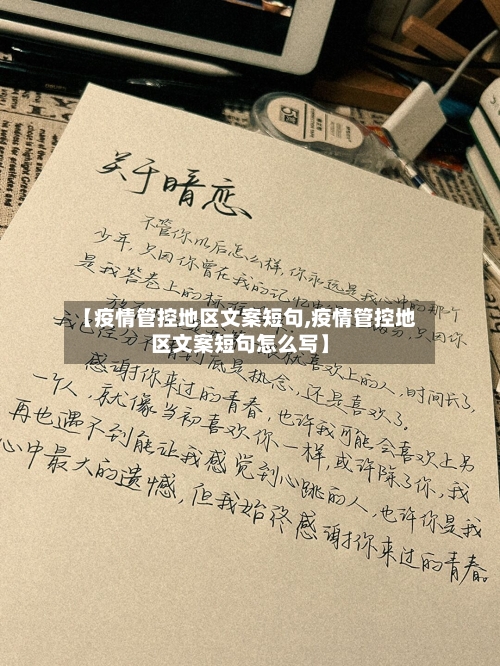 关于暗恋
不管你以后怎么样,你永远是我心中的那个
少年,只因你曾在我的记忆
是我答卷上的标
只因你
喜欢上的人,时间长了,
我已经分不
到底是执念,还是喜欢了。
【疫情管控地区文案短句,疫情管控地
区文案短句怎么写】
感谢你来过的青春,也许我可能会喜欢上另
一个人,就像当初喜欢你一样,或许除了你,我
再也遇不到能让我感觉到心跳的人,也许你是我
心中最大的遗憾,但我始终感谢你来过的青春。